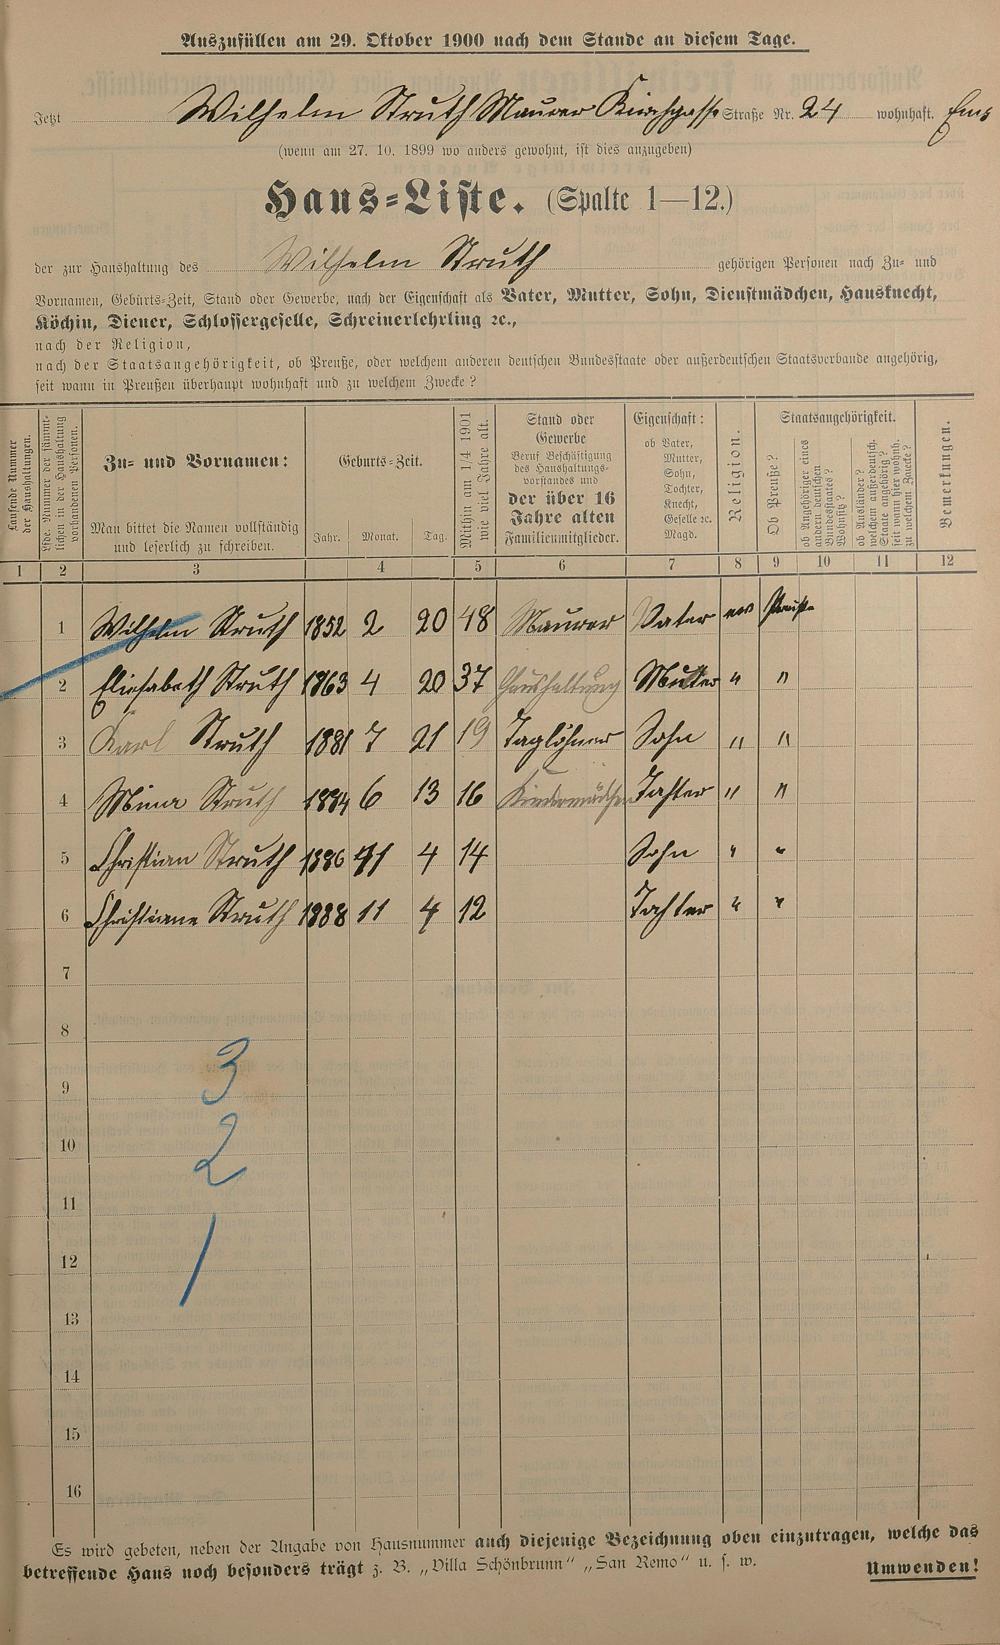 Auszufüllen am 29. Oktober 1900 nach dem Stande an diesem Tage.
Jetzt Wilhelm Struth Maurer Kirchgasse Straße Nr. 24 wohnhaft. Ems
(wenn am 27. 10. 1899 wo anders gewohnt, ist dies anzugeben)
Haus-Liste. (Spalte 1—12.)
der zur Haushaltung des Wilhelm Struth gehörigen Personen nach Zu- und
Vornamen, Geburts-Zeit, Stand oder Gewerbe, nach der Eigenschaft als Vater, Mutter, Sohn, Dienstmädchen, Hausknecht,
Köchin, Diener, Schlossergeselle, Schreinerlehrling ꝛc.,
nach der Religion,
nach der Staatsangehörigkeit, ob Preuße, oder welchem anderen deutschen Bundesstaate oder außerdeutschen Staatsverbande angehörig,
seit wann in Preußen überhaupt wohnhaft und zu welchem Zwecke?
Laufende Nummer
der Haushaltungen.
Lfde. Nummer der sämmt-
lichen in der Haushaltung
vorhandenen Personen.
Zu- und Vornamen:
Man bittet die Namen vollständig
und leserlich zu schreiben.
Geburts-Zeit.
Jahr. Monat. Tag.
Mithin am 1/4 1901
wie viel Jahre alt.
Stand oder
Gewerbe
Beruf Beschäftigung
des Haushaltungs-
vorstandes und
der über 16
Jahre alten
Familienmitglieder.
Eigenschaft:
ob Vater,
Mutter,
Sohn,
Tochter,
Knecht,
Geselle ꝛc.
Magd.
Religion.
Staatsangehörigkeit.
Ob Preuße?
ob Angehöriger eines
andern deutschen
Bundesstaates?
Wohnsitz?
ob Ausländer?
welchem außerdeutsch.
Staate angehörig?
seit wann hier wohnh.
zu welchem Zwecke?
Bemerkungen.
1 2 3 4 5 6 7 8 9 10 11 12
1 Wilhelm Struth 1852 2 20 48 Maurer Vater ev Preuße
2 Eliesabeth Struth 1863 4 20 37 Haushaltung Mutter " "
3 Karl Struth 1881 7 21 19 Taglöhner Sohn " "
4 Mina Struth 1884 6 13 16 Kindermädchen Tochter " "
5 Christian Struth 1886 11 4 14 Sohn " "
6 Christiane Struth 1888 11 4 12 Tochter " "
7
8
9 3
10 2
11
12 1
13
14
15
16
Es wird gebeten, neben der Angabe von Hausnummer auch diejenige Bezeichnung oben einzutragen, welche das
betreffende Haus noch besonders trägt z. B. „Villa Schönbrunn" „San Remo" u. s. w.
Umwenden!